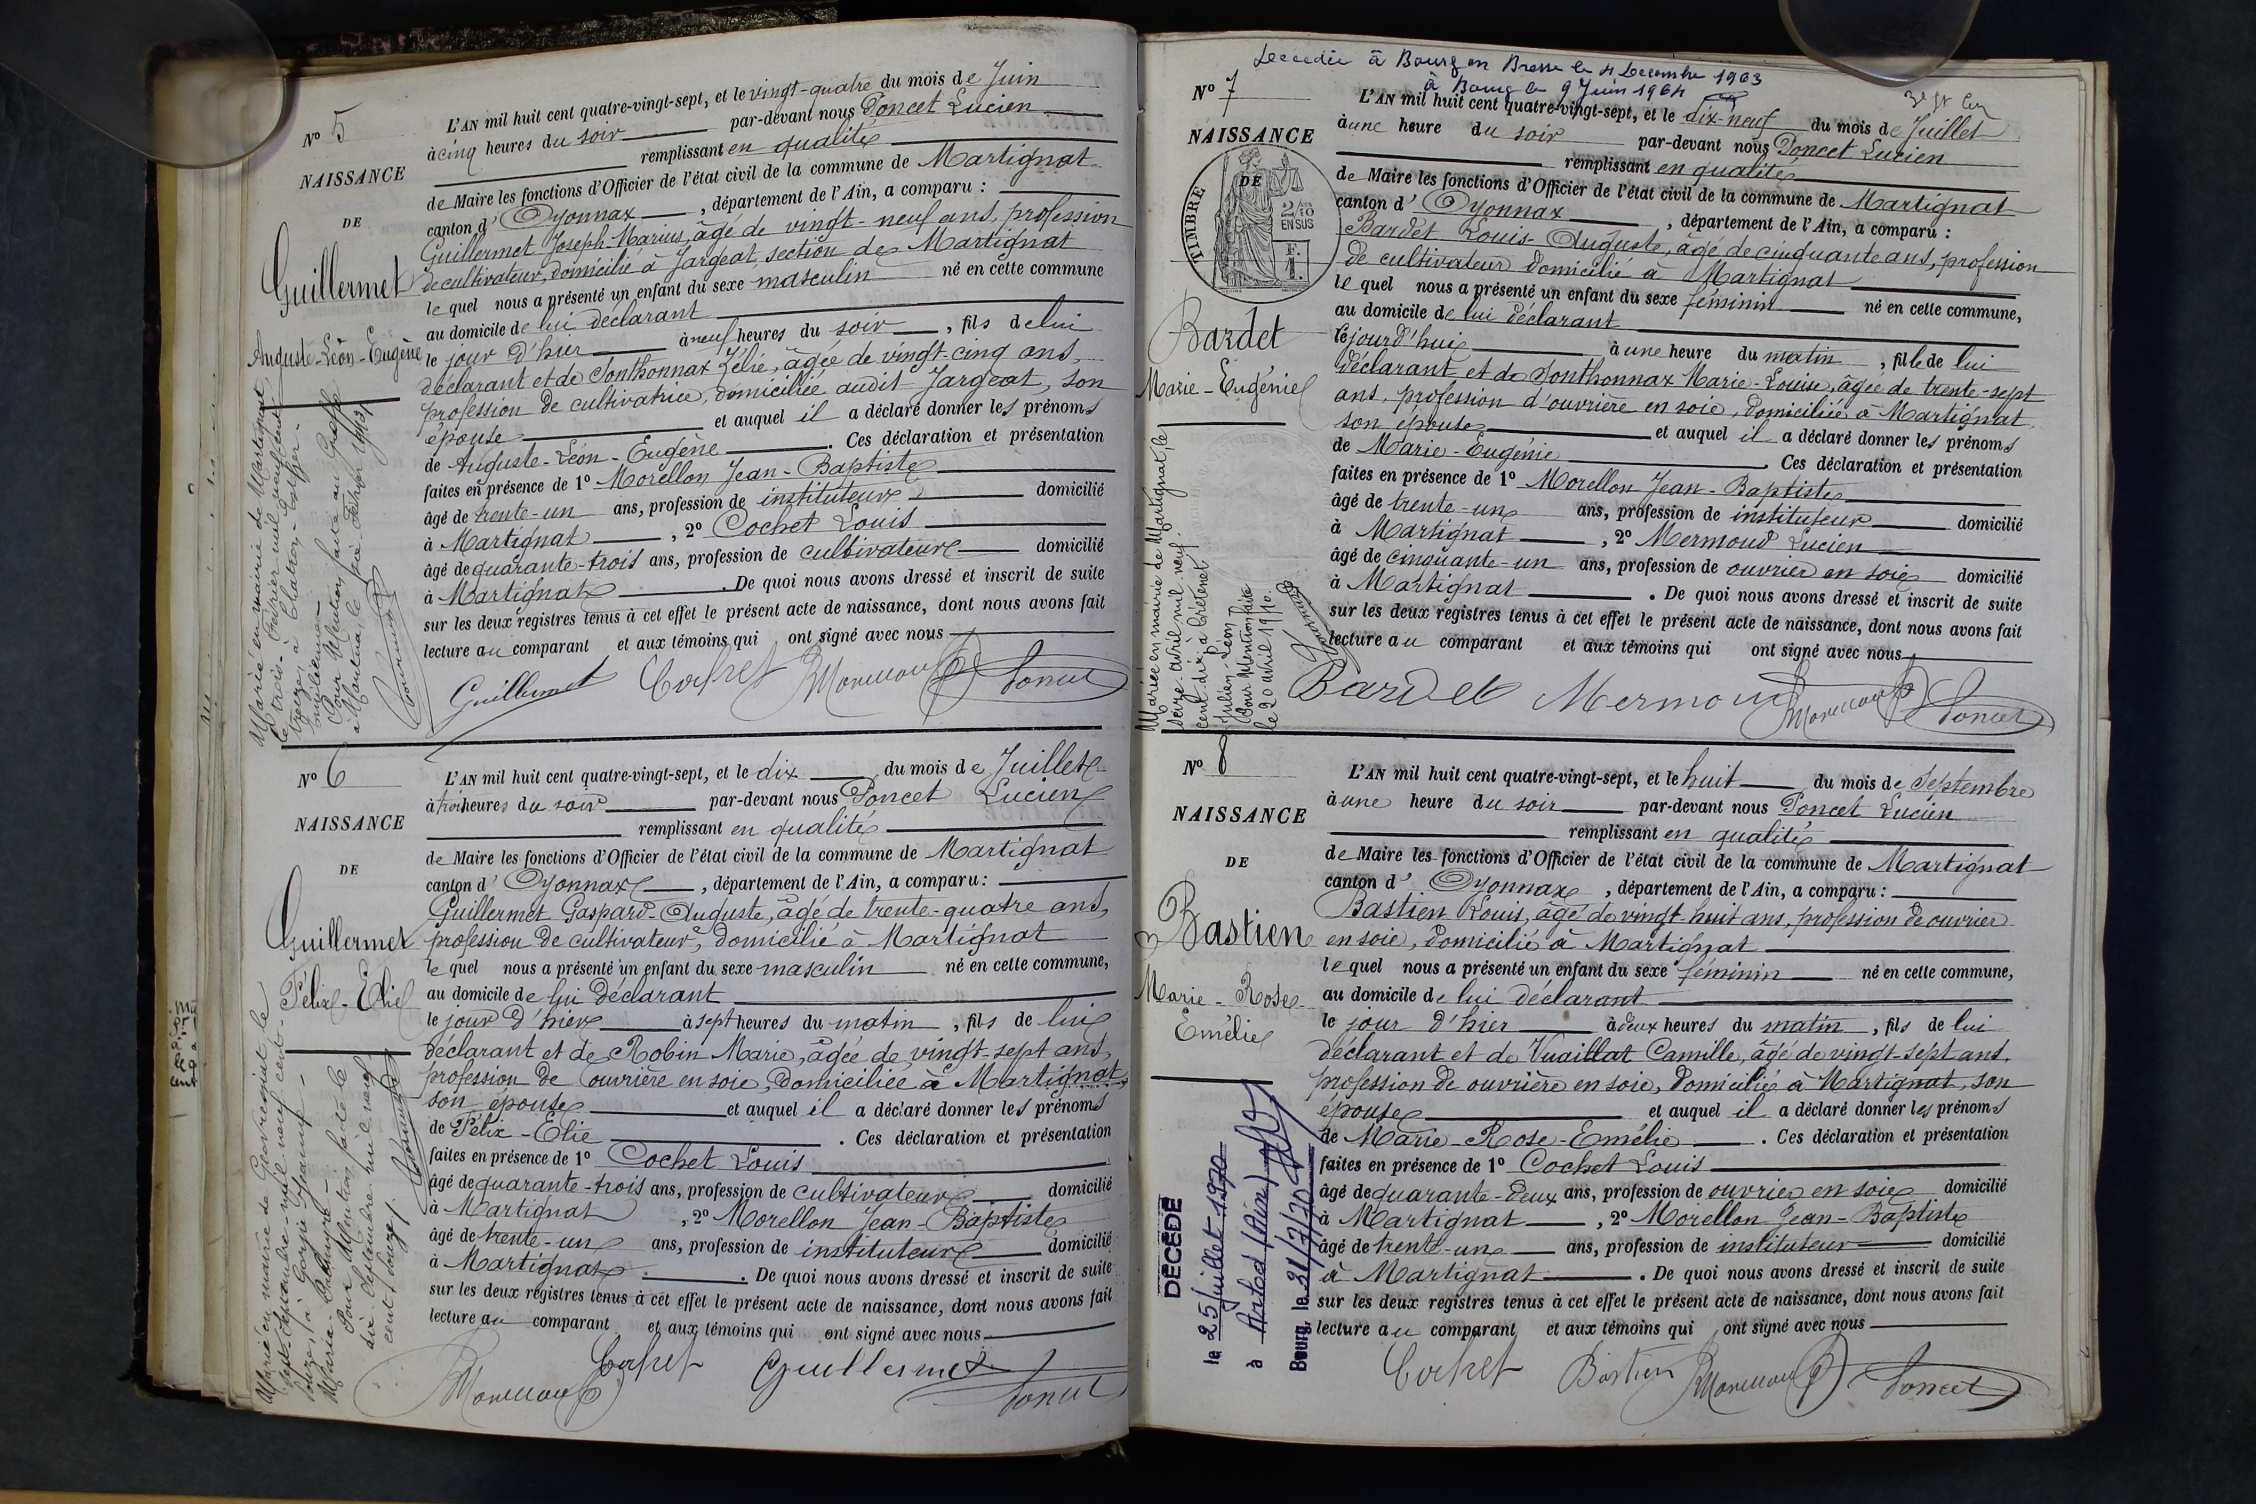 N° 5
NAISSANCE
DE
Guillermet
Auguste-Léon-Eugène
Marié en mairie de Martignat
le trois Février mil neuf cent
treize, à Chatron Esther
Pour Mention faite au Greffe
L'AN mil huit cent quatre-vingt-sept, et le vingt-quatre du mois de Juin
à cinq heures du soir par-devant nous Poncet Lucien
remplissant en qualité
de Maire les fonctions d'Officier de l'état civil de la commune de Martignat
canton d'Oyonnax, département de l'Ain, a comparu :
Guillermet Joseph-Marius, âgé de vingt-neuf ans, profession
de cultivateur, domicilié à Jargeat, section de Martignat
le quel nous a présenté un enfant du sexe masculin né en cette commune
au domicile de lui déclarant
le jour d'hier à neuf heures du soir, fils de lui
déclarant et de Sonthonnax Zélie, âgée de vingt-cinq ans,
profession de cultivatrice, domiciliée audit Jargeat, son
épouse et auquel il a déclaré donner les prénoms
de Auguste-Léon-Eugène. Ces déclaration et présentation
faites en présence de 1° Morellon Jean-Baptiste
âgé de trente-un ans, profession de instituteur domicilié
à Martignat, 2° Cochet Louis
âgé de quarante-trois ans, profession de cultivateur domicilié
à Martignat. De quoi nous avons dressé et inscrit de suite
sur les deux registres tenus à cet effet le présent acte de naissance, dont nous avons fait
lecture au comparant et aux témoins qui ont signé avec nous
Guillermet Cochet Morellon Poncet
N° 6
NAISSANCE
DE
Guillermet
Félix-Elie
Marié en mairie de Geovreissiat le
sept Septembre mil neuf cent
douze, à
Pour Mention faite le
dix Septembre mil neuf
cent douze.
L'AN mil huit cent quatre-vingt-sept, et le dix du mois de Juillet
à trois heures du soir par-devant nous Poncet Lucien
remplissant en qualité
de Maire les fonctions d'Officier de l'état civil de la commune de Martignat
canton d'Oyonnax, département de l'Ain, a comparu :
Guillermet Gaspard-Auguste, âgé de trente-quatre ans,
profession de cultivateur, domicilié à Martignat
le quel nous a présenté un enfant du sexe masculin né en cette commune,
au domicile de lui déclarant
le jour d'hier à sept heures du matin, fils de lui
déclarant et de Robin Marie, âgée de vingt-sept ans,
profession de ouvrière en soie, domiciliée à Martignat,
son épouse et auquel il a déclaré donner les prénoms
de Félix-Elie. Ces déclaration et présentation
faites en présence de 1° Cochet Louis
âgé de quarante-trois ans, profession de cultivateur domicilié
à Martignat, 2° Morellon Jean-Baptiste
âgé de trente-un ans, profession de instituteur domicilié
à Martignat. De quoi nous avons dressé et inscrit de suite
sur les deux registres tenus à cet effet le présent acte de naissance, dont nous avons fait
lecture au comparant et aux témoins qui ont signé avec nous
Morellon Cochet Guillermet Poncet
Decedée à Bourg en Bresse le 4 Decembre 1963
à Bourg le 9 Juin 1964
N° 7
NAISSANCE
DE
TIMBRE
2/10
EN SUS
F.
1.
Bardet
Marie-Eugénie
Mariée en mairie de Martignat, le
seize avril mil neuf
cent dix, à Crétenet
Julien-Léon
Pour Mention faite
le 20 avril 1910.
L'AN mil huit cent quatre-vingt-sept, et le dix-neuf du mois de Juillet
à une heure du soir par-devant nous Poncet Lucien
remplissant en qualité
de Maire les fonctions d'Officier de l'état civil de la commune de Martignat
canton d'Oyonnax, département de l'Ain, a comparu :
Bardet Louis-Auguste, âgé de cinquante ans, profession
de cultivateur domicilié à Martignat
le quel nous a présenté un enfant du sexe féminin né en cette commune,
au domicile de lui déclarant
le jourd'hui à une heure du matin, fille de lui
déclarant et de Sonthonnax Marie-Louise, âgée de trente-sept
ans, profession d'ouvrière en soie, domiciliée à Martignat,
son épouse et auquel il a déclaré donner les prénoms
de Marie-Eugénie. Ces déclaration et présentation
faites en présence de 1° Morellon Jean-Baptiste
âgé de trente-un ans, profession de instituteur domicilié
à Martignat, 2° Mermoud Lucien
âgé de cinquante-un ans, profession de ouvrier en soie domicilié
à Martignat. De quoi nous avons dressé et inscrit de suite
sur les deux registres tenus à cet effet le présent acte de naissance, dont nous avons fait
lecture au comparant et aux témoins qui ont signé avec nous
Bardet Mermoud Morellon Poncet
N° 8
NAISSANCE
DE
Bastien
Marie-Rose
Emélie
DÉCÉDÉ
le 25 juillet 1970
à Arbod (Ain)
Bourg, le 31/7/70
L'AN mil huit cent quatre-vingt-sept, et le huit du mois de Septembre
à une heure du soir par-devant nous Poncet Lucien
remplissant en qualité
de Maire les fonctions d'Officier de l'état civil de la commune de Martignat
canton d'Oyonnax, département de l'Ain, a comparu :
Bastien Louis, âgé de vingt-huit ans, profession de ouvrier
en soie, domicilié à Martignat
le quel nous a présenté un enfant du sexe féminin né en cette commune,
au domicile de lui déclarant
le jour d'hier à deux heures du matin, fils de lui
déclarant et de Vuaillat Camille, âgé de vingt-sept ans,
profession de ouvrière en soie, domicilié à Martignat, son
épouse et auquel il a déclaré donner les prénoms
de Marie-Rose-Emélie. Ces déclaration et présentation
faites en présence de 1° Cochet Louis
âgé de quarante-deux ans, profession de ouvrier en soie domicilié
à Martignat, 2° Morellon Jean-Baptiste
âgé de trente-un ans, profession de instituteur domicilié
à Martignat. De quoi nous avons dressé et inscrit de suite
sur les deux registres tenus à cet effet le présent acte de naissance, dont nous avons fait
lecture au comparant et aux témoins qui ont signé avec nous
Cochet Bastien Morellon Poncet